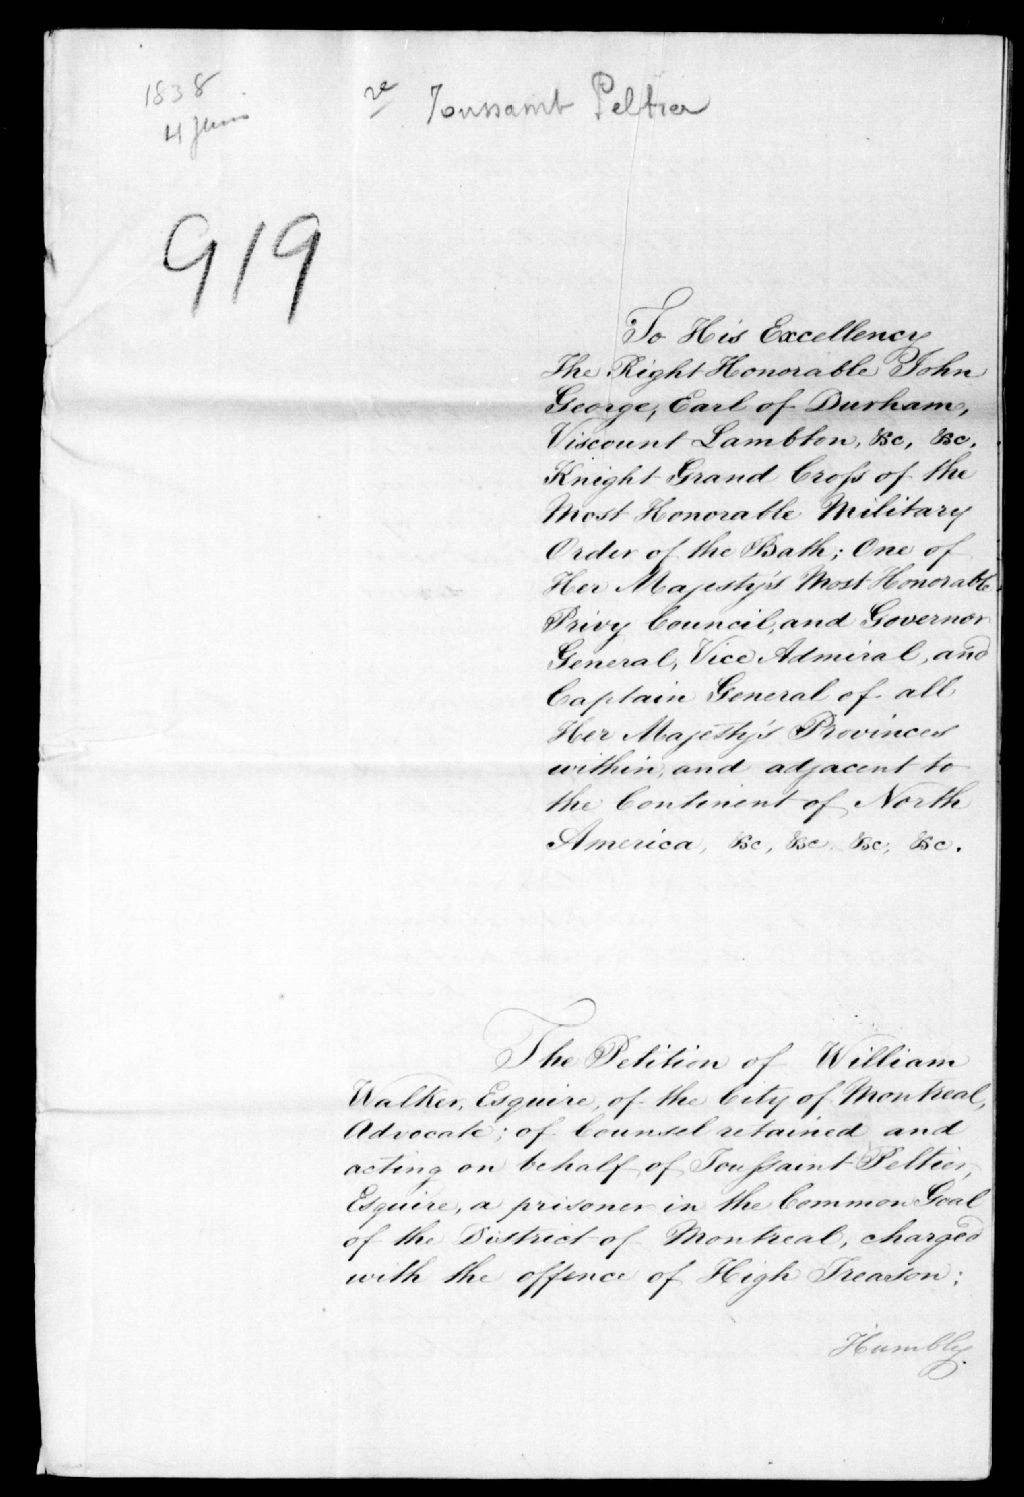 1838
4 Juin
re Toussaint Peltier
919
To His Excellency
The Right Honorable John
George, Earl of Durham,
Viscount Lambton, &c, &c,
Knight Grand Croſs of the
Most Honorable Military
Order of the Bath; One of
Her Majesty's Most Honorable
Privy Council, and Governor
General, Vice Admiral, and
Captain General of all
Her Majesty's Provinces
within, and adjacent to
the Continent of North
America, &c, &c &c, &c.
The Petition of William
Walker, Esquire, of the City of Montreal,
Advocate; of Counsel retained and
acting on behalf of Touſsaint Peltier,
Esquire, a prisoner in the Common Goal
of the District of Montreal, charged
with the offence of High Treason;
Humbly